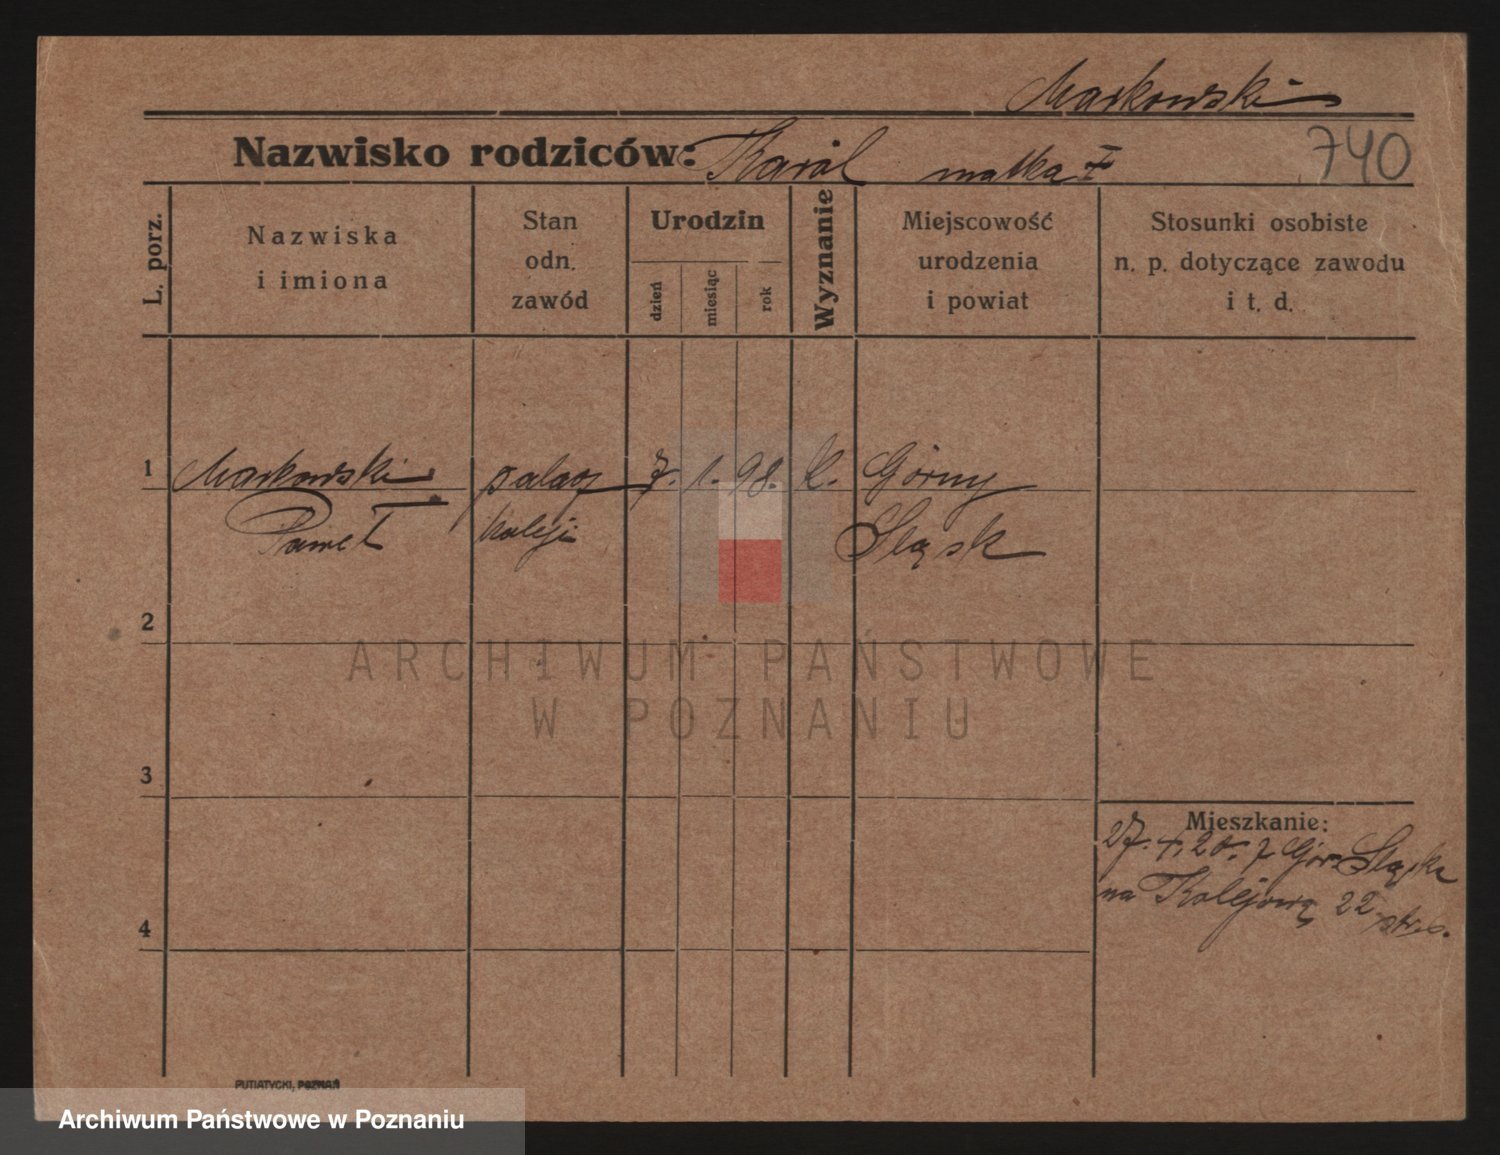 Markowski
Nazwisko rodziców: Karól matka
740
L. porz.
Nazwiska
i imiona
Stan
odn.
zawód
Urodzin
dzień
miesiąc
rok
Wyznanie
Miejscowość
urodzenia
i powiat
Stosunki osobiste
n. p. dotyczące zawodu
i t. d.
1
Markowski
Paweł
palacz
kolej.
7. 1. 98.
K.
Górny
Śląsk
2
3
4
Mieszkanie:
27. 20. z Górn Śląska
na Kolejową 22
PUTIATYCKI, POZNAŃ
ARCHIWUM PAŃSTWOWE
W POZNANIU
Archiwum Państwowe w Poznaniu